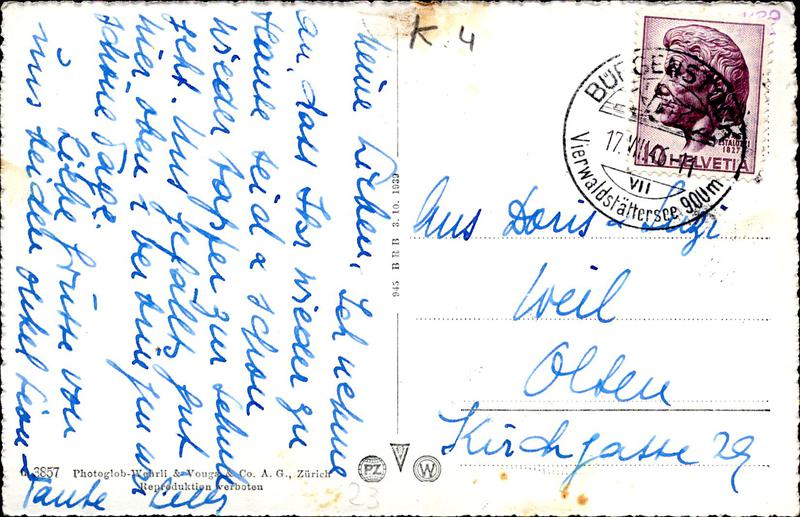 K 4
meine Lieben, Ich nehme
an, dass Ihr wieder zu
Hause seid & schon
wieder tapfer zur Schule
geht. Uns gefällts gut
hier oben & verbringen wir
schöne Tage.
Liebe Grüsse von
uns beiden Onkel Leon
Tante
945 BRB 3. 10. 1939
BÜRGENSTOCK
17. VII. 40 - 11
VII
Vierwaldstättersee 900m
PESTALOZZI
1827
HELVETIA
Doris &
Weil
Olten
Kirchgasse 29
3857 Photoglob-Wehrli & Vouga & Co. A. G., Zürich
Reproduktion verboten
PZ
V
W
23